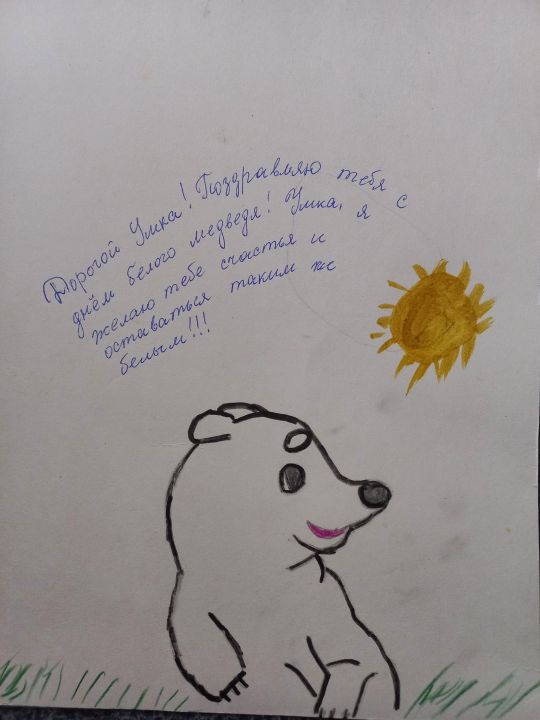 Дорогой Умка! Поздравляю тебя с
днём белого медведя! Умка, я
желаю тебе счастья и
оставаться таким же
белым!!!